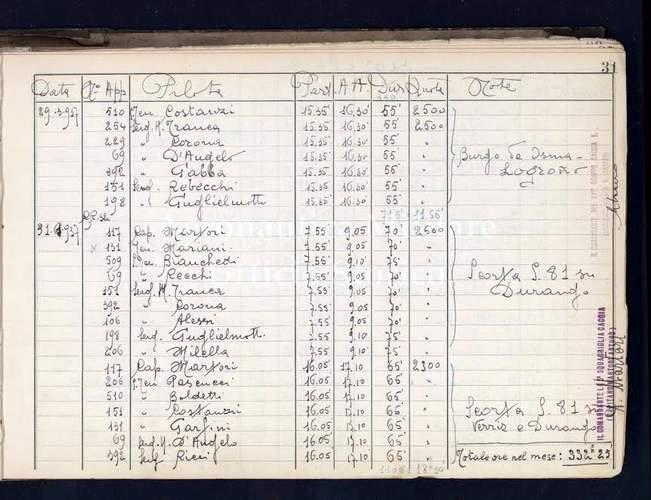 31
Data Nº App Pilota Part. A A Dur Quota Note
29.3.937 510 Ten. Costanzi 15.35' 16.30' 55' 2500
254 Serg. M. Franca 15.35 16.30' 55' 2500
229 " Corona 15.35 16.30' 55' "
69 " D'Angelo 15.35 16.30 55' "
392 " Gabba 15.35 16.30 55' "
151 Serg. Rebecchi 15.35 16.30 55' "
198 " Guglielmotti 15.35 16.30' 55' "
Burgo de Osma -
Logroño
31.3.937 117 Cap. Martori 7.55' 9.05 70' 2500
131 Ten. Mariani 7.55' 9.05 70' "
509 S.Ten. Bianchedi 7.55 9.10' 75' "
69 " Recchi 7.55 9.05 70' "
151 Serg. M. Franca 7.55 9.05 70' "
392 " Corona 7.55 9.05 70' "
106 " Alessi 7.55 9.05 70' "
198 Serg. Guglielmotti 7.55 9.10' 75' "
206 " Milella 7.55 9.10' 75' "
Scorta S. 81 su
Durango
117 Cap. Martori 16.05' 17.10 65' 2300
206 S.Ten. Pascucci 16.05 17.10 65' "
510 " Boldetti 16.05 17.10 65' "
151 " Costanzi 16.05 17.10 65' "
131 " Garfini 16.05 17.10 65' "
69 Serg. M. D'Angelo 16.05 17.10 65' "
392 Serg. Ricci 16.05 17.10 65' "
Scorta S. 81 su
Verriz e Durango
Totale ore nel mese: 332 25
IL COMANDANTE LA SQUADRIGLIA CACCIA